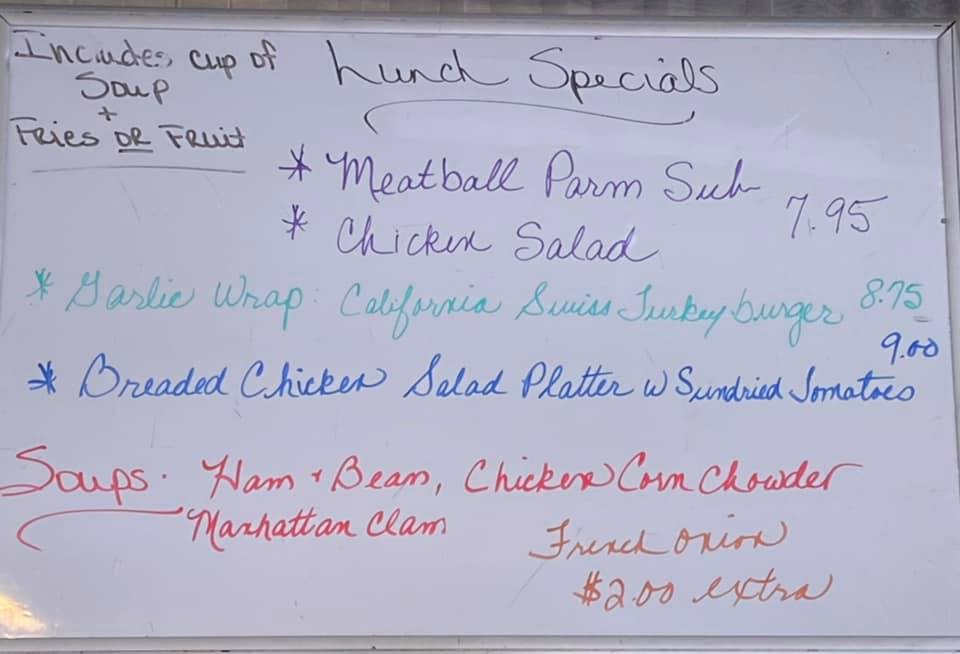 Includes cup of
Soup
+
Fries OR Fruit
Lunch Specials
* Meatball Parm Sub
* Chicken Salad
7.95
* Garlic Wrap: California Swiss Turkey burger 8.75
9.00
* Breaded Chicken Salad Platter w Sundried Tomatoes
Soups. Ham + Bean, Chicken Corn Chowder
Manhattan Clam
French Onion
$2.00 extra